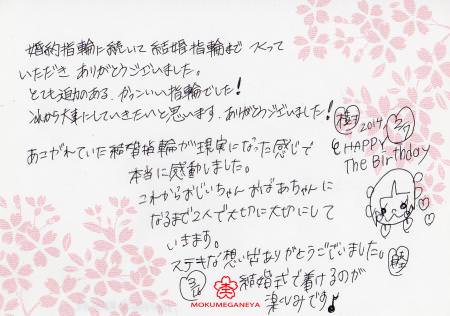 婚約指輪に続いて結婚指輪まで作って
いただきありがとうございました。
とても迫力のある、かっこいい指輪でした!
これから大事にしていきたいと思います。ありがとうございました!
樹
2014
3/7
HAPPY
The Birthday
あこがれていた結婚指輪が現実になった感じで
本当に感動しました。
これからおじいちゃんおばあちゃんに
なるまで2人で大切に大切にして
いきます。
ステキな想い出ありがとうございました。
結婚式で着けるのが
楽しみです♪
MOKUMEGANEYA